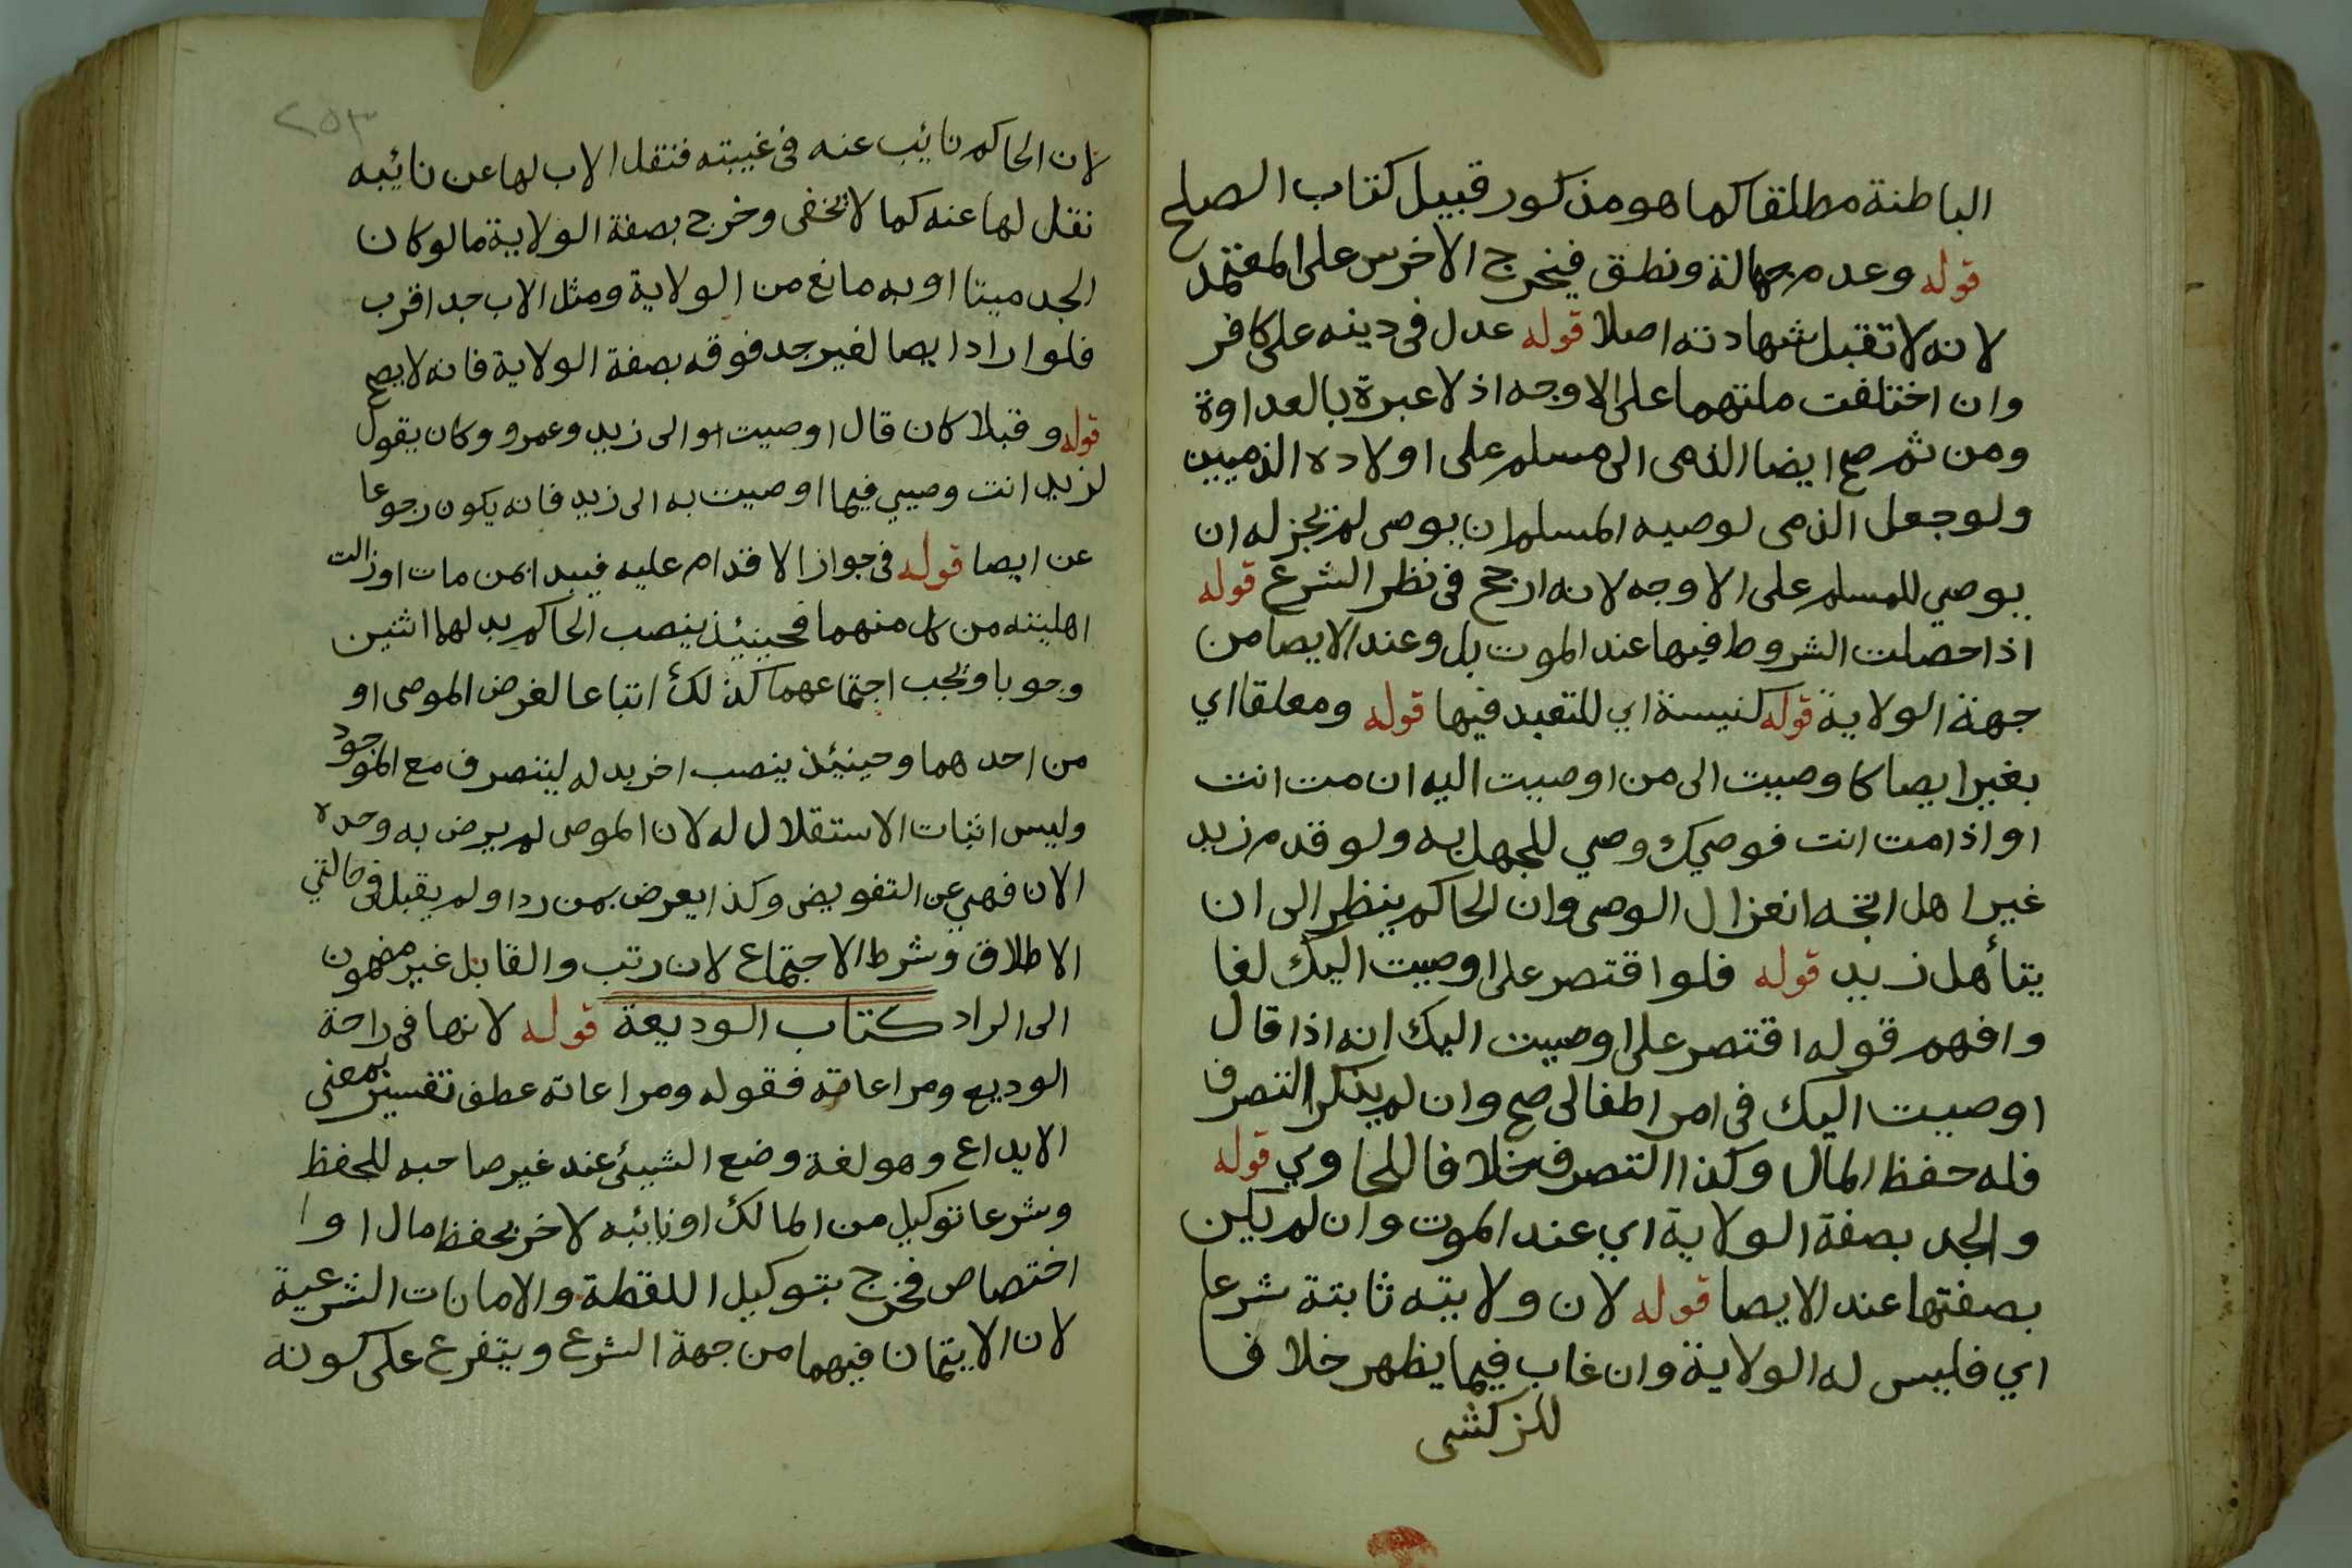 الباطنة مطلقا كما هو مذكور قبيل كتاب الصلح
قوله وعدم جهالة ونطق فيخرج الاخرس على المعتمد
لانه لا تقبل شهادته اصلا قوله عدل في دينه على كافر
وان اختلفت ملتهما على الاوجه اذ لا عبرة بالعداوة
ومن ثم صح ايضا الذمى الى مسلم على اولاده الذميين
ولو جعل الذمى لوصيه المسلم ان يوصى لم يجز له ان
يوصي للمسلم على الاوجه لانه ارجح في نظر الشرع قوله
اذا حصلت الشروط فيها عند الموت بل وعند الايصا من
جهة الولاية قوله كنيسة اي للتعبد فيها قوله ومعلقا اي
بغير ايصا كاوصيت الى من اوصيت اليه ان مت انت
او اذا مت انت فوصيك وصي للجهل به ولو قدم زيد
غير اهل اتجه انعزال الوصى وان الحاكم ينظر الى ان
يتأهل زيد قوله فلو اقتصر على اوصيت اليك لغا
وافهم قوله اقتصر على اوصيت اليك انه اذا قال
اوصيت اليك في امر اطفالى صح وان لم يذكر التصرف
فله حفظ المال وكذا التصرف خلافا للحاوي قوله
والجد بصفة الولاية اي عند الموت وان لم يكن
بصفتها عند الايصا قوله لان ولايته ثابتة شرعا
اي فليس له الولاية وان غاب فيما يظهر خلافا
للزركشى
٢٥٣
لان الحاكم نايب عنه في غيبته فنقل الاب لها عن نائبه
نقل لها عنه كما لا يخفى وخرج بصفة الولاية ما لو كان
الجد ميتا او به مانع من الولاية ومثل الاب جد اقرب
فلو اراد ايصا لغير جد فوقه بصفة الولاية فانه لا يصح
قوله وقبلا كان قال اوصيت الى زيد وعمرو وكان يقول
لزيد انت وصيي فيما اوصيت به الى زيد فانه يكون رجوعا
عن ايصا قوله في جواز الاقدام عليه فيبدا بمن مات او زالت
اهليته من كل منهما فحينئذ ينصب الحاكم بدلهما اثنين
وجوبا ويجب اجتماعهما كذلك اتباعا لغرض الموصى او
من احدهما وحينئذ ينصب اخر بدله ليتصرف مع الموجود
وليس اثبات الاستقلال له لان الموصى لم يرض به وحده
الان فهي عن التفويض وكذا يعرض بمن رد او لم يقبل في حالتي
الاطلاق وشرط الاجتماع لان رتب والقابل غير مضموت
الى الراد كتاب الوديعة قوله لانها في راحة
الوديع ومراعاته فقوله ومراعاته عطف تفسير بمعنى
الايداع وهو لغة وضع الشيئ عند غير صاحبه للحفظ
وشرعا توكيل من المالك او نايبه لاخر بحفظ مال او ا
اختصاص فخرج بتوكيل اللقطة والامانات الشرعية
لان الايتمان فيهما من جهة الشرع ويتفرع على كونه